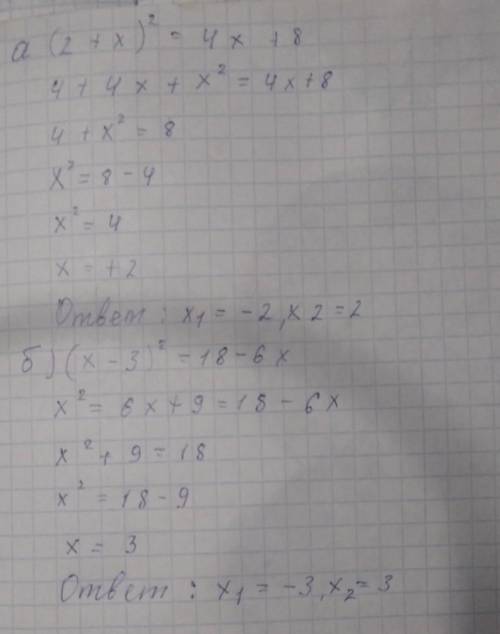 а (2 + x)² = 4x + 8
4 + 4x + x² = 4x + 8
4 + x² = 8
x² = 8 - 4
x² = 4
x = +2
Ответ : x₁ = -2, x2 = 2
б) (x - 3)² = 18 - 6x
x² = 6x + 9 = 18 - 6x
x² + 9 = 18
x² = 18 - 9
x = 3
Ответ : x₁ = -3, x₂ = 3